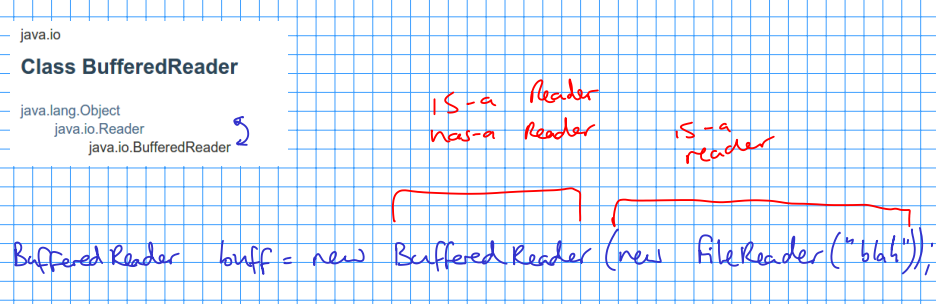 java.io
Class BufferedReader
java.lang.Object
java.io.Reader
java.io.BufferedReader
is-a Reader
has-a Reader
is-a
reader
BufferedReader buff = new BufferedReader (new FileReader ("blah"));